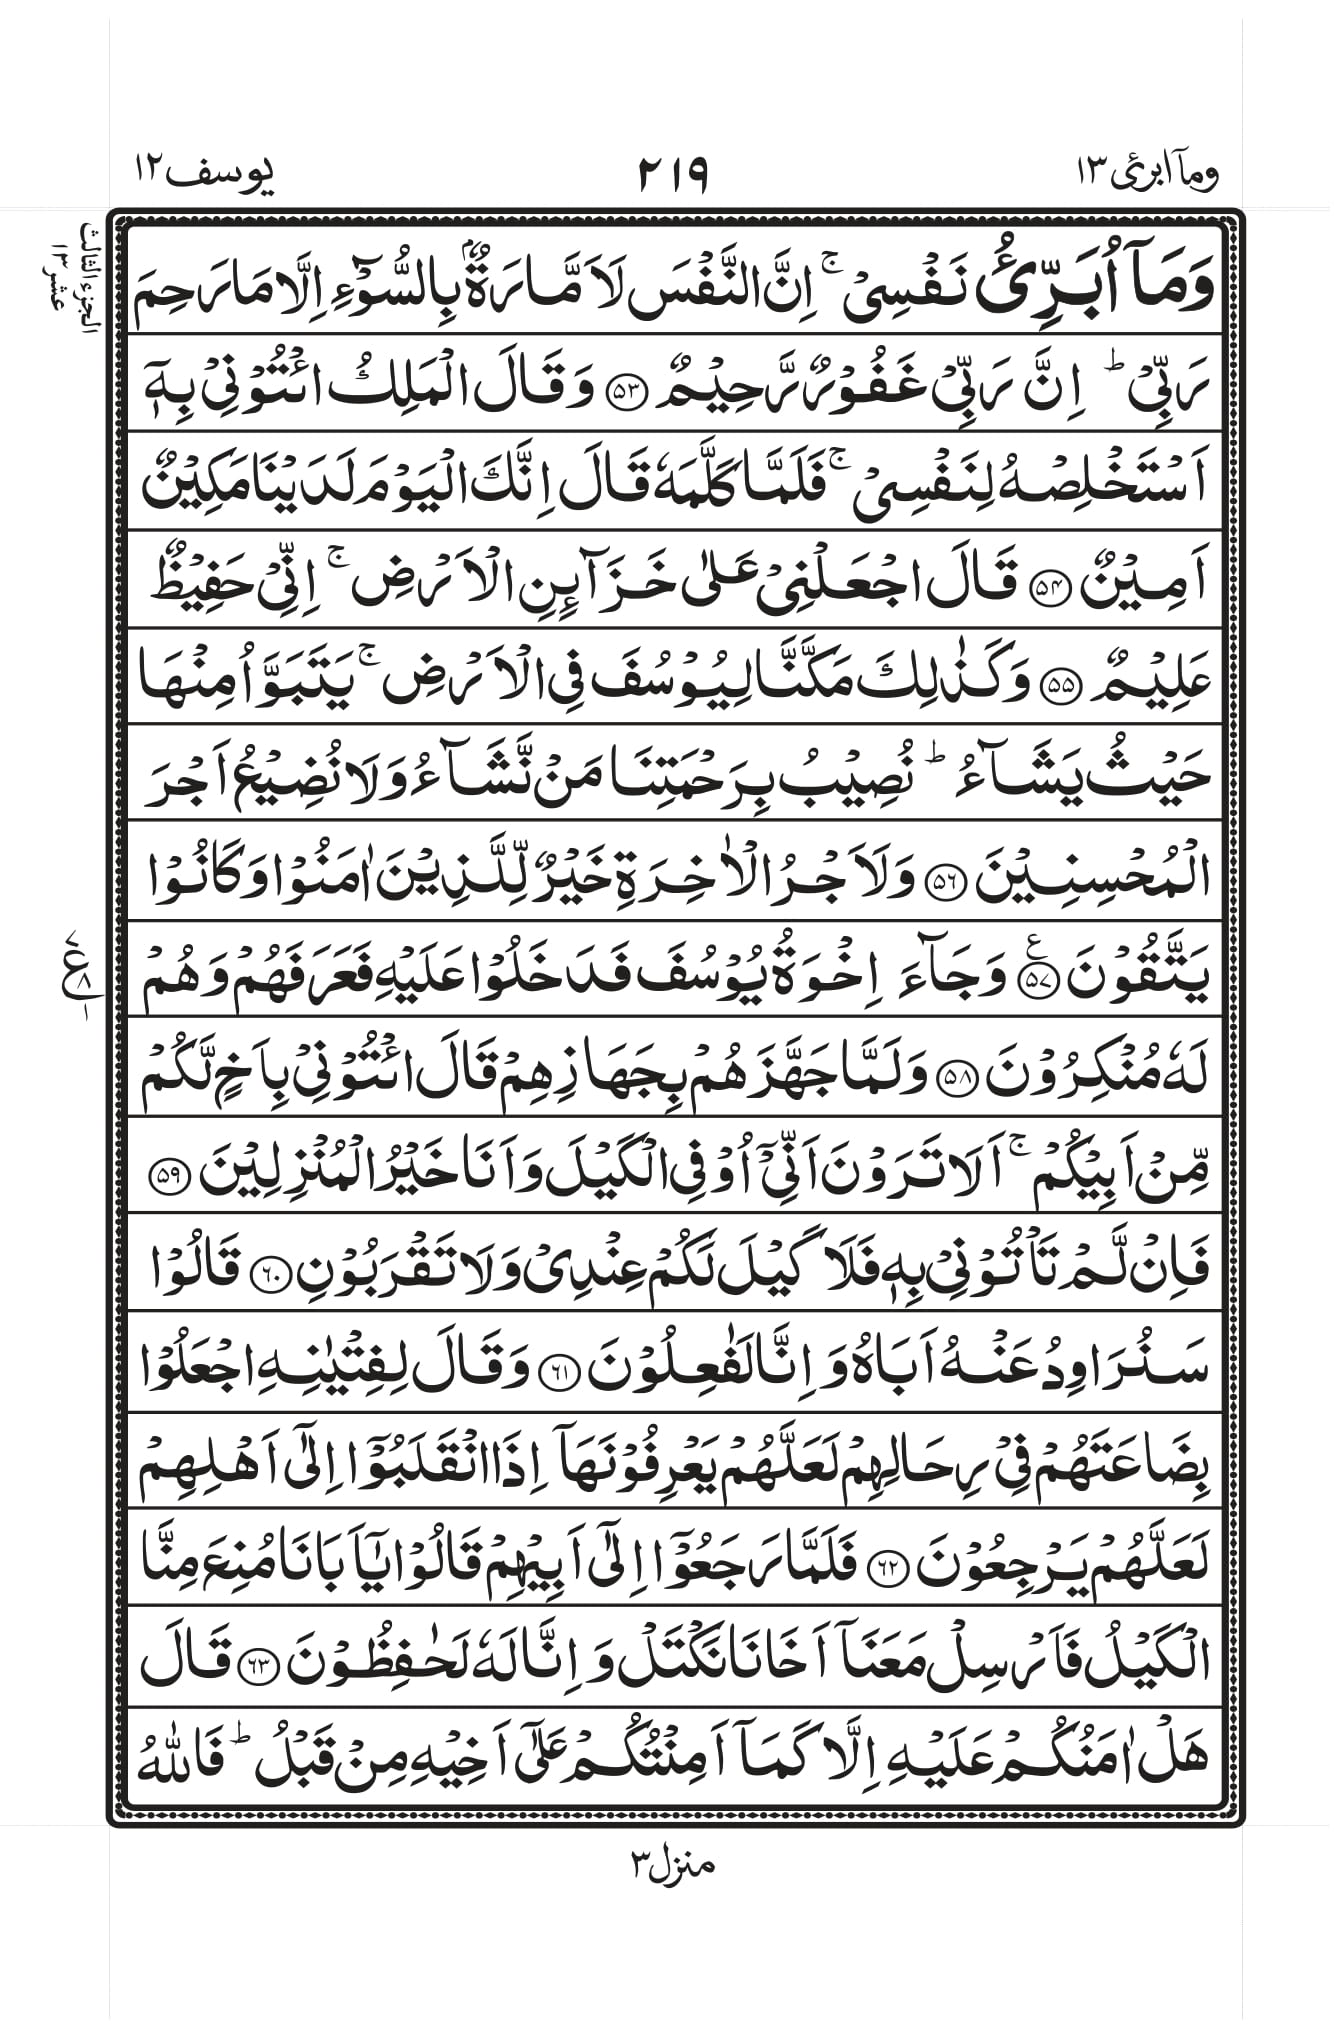 ومآ ابرئ ١٣
٢١٩
يوسف ١٢
الجزء الثالث
عشر ١٣
وَمَاۤ اُبَرِّئُ نَفْسِیْ ۚ اِنَّ النَّفْسَ لَاَمَّارَةٌۢ بِالسُّوْٓءِ اِلَّا مَا رَحِمَ
رَبِّیْ ؕ اِنَّ رَبِّیْ غَفُوْرٌ رَّحِیْمٌ ﴿۵۳﴾ وَقَالَ الْمَلِكُ ائْتُوْنِیْ بِهٖۤ
اَسْتَخْلِصْهُ لِنَفْسِیْ ۚ فَلَمَّا كَلَّمَهٗ قَالَ اِنَّكَ الْیَوْمَ لَدَیْنَا مَكِیْنٌ
اَمِیْنٌ ﴿۵۴﴾ قَالَ اجْعَلْنِیْ عَلٰی خَزَآىِٕنِ الْاَرْضِ ۚ اِنِّیْ حَفِیْظٌ
عَلِیْمٌ ﴿۵۵﴾ وَكَذٰلِكَ مَكَّنَّا لِیُوْسُفَ فِی الْاَرْضِ ۚ یَتَبَوَّاُ مِنْهَا
حَیْثُ یَشَآءُ ؕ نُصِیْبُ بِرَحْمَتِنَا مَنْ نَّشَآءُ وَلَا نُضِیْعُ اَجْرَ
الْمُحْسِنِیْنَ ﴿۵۶﴾ وَلَاَجْرُ الْاٰخِرَةِ خَیْرٌ لِّلَّذِیْنَ اٰمَنُوْا وَكَانُوْا
یَتَّقُوْنَ ﴿۵۷﴾ ع وَجَآءَ اِخْوَةُ یُوْسُفَ فَدَخَلُوْا عَلَیْهِ فَعَرَفَهُمْ وَهُمْ
٧ ع ٨ ١
لَهٗ مُنْكِرُوْنَ ﴿۵۸﴾ وَلَمَّا جَهَّزَهُمْ بِجَهَازِهِمْ قَالَ ائْتُوْنِیْ بِاَخٍ لَّكُمْ
مِّنْ اَبِیْكُمْ ۚ اَلَا تَرَوْنَ اَنِّیْۤ اُوْفِی الْكَیْلَ وَاَنَا خَیْرُ الْمُنْزِلِیْنَ ﴿۵۹﴾
فَاِنْ لَّمْ تَاْتُوْنِیْ بِهٖ فَلَا كَیْلَ لَكُمْ عِنْدِیْ وَلَا تَقْرَبُوْنِ ﴿۶۰﴾ قَالُوْا
سَنُرَاوِدُ عَنْهُ اَبَاهُ وَاِنَّا لَفٰعِلُوْنَ ﴿۶۱﴾ وَقَالَ لِفِتْیٰنِهِ اجْعَلُوْا
بِضَاعَتَهُمْ فِیْ رِحَالِهِمْ لَعَلَّهُمْ یَعْرِفُوْنَهَاۤ اِذَا انْقَلَبُوْۤا اِلٰۤی اَهْلِهِمْ
لَعَلَّهُمْ یَرْجِعُوْنَ ﴿۶۲﴾ فَلَمَّا رَجَعُوْۤا اِلٰۤی اَبِیْهِمْ قَالُوْا یٰۤاَبَانَا مُنِعَ مِنَّا
الْكَیْلُ فَاَرْسِلْ مَعَنَاۤ اَخَانَا نَكْتَلْ وَاِنَّا لَهٗ لَحٰفِظُوْنَ ﴿۶۳﴾ قَالَ
هَلْ اٰمَنُكُمْ عَلَیْهِ اِلَّا كَمَاۤ اَمِنْتُكُمْ عَلٰۤی اَخِیْهِ مِنْ قَبْلُ ؕ فَاللّٰهُ
منزل ٣